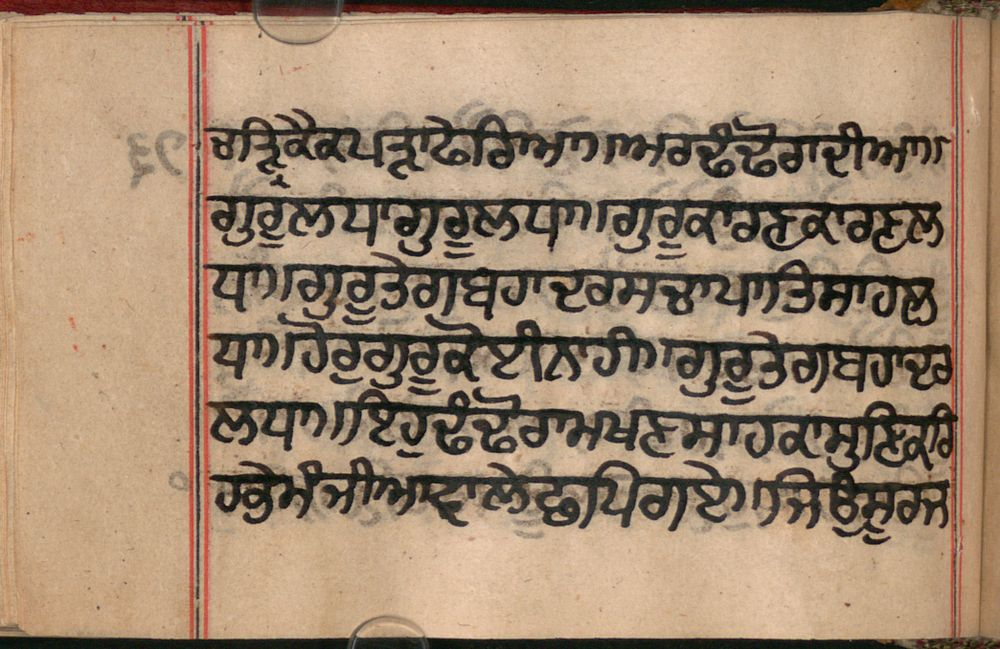 ਚੜਿਕੈਕਪੜਾਫੇਰਿਆ॥ਅਰਢੰਢੋਰਾਦੀਆ॥
ਗੁਰੂਲਧਾਗੁਰੂਲਧਾ॥ਗੁਰੂਕਾਰਣਕਾਰਣਲ
ਧਾ॥ਗੁਰੂਤੇਗਬਹਾਦਰਸਚਾਪਾਤਿਸਾਹਲ
ਧਾ॥ਹੋਰੁਗੁਰੂਕੋਈਨਾਹੀ॥ਗੁਰੂਤੇਗਬਹਾਦਰ
ਲਧਾ॥ਇਹੁਢੰਢੋਰਾਮਖਣਸਾਹਕਾਸੁਣਿਕਰਿ
ਹਭੇਮੰਜੀਆਵਾਲੇਛਪਿਗਏ॥ਜਿਉਸੂਰਜ